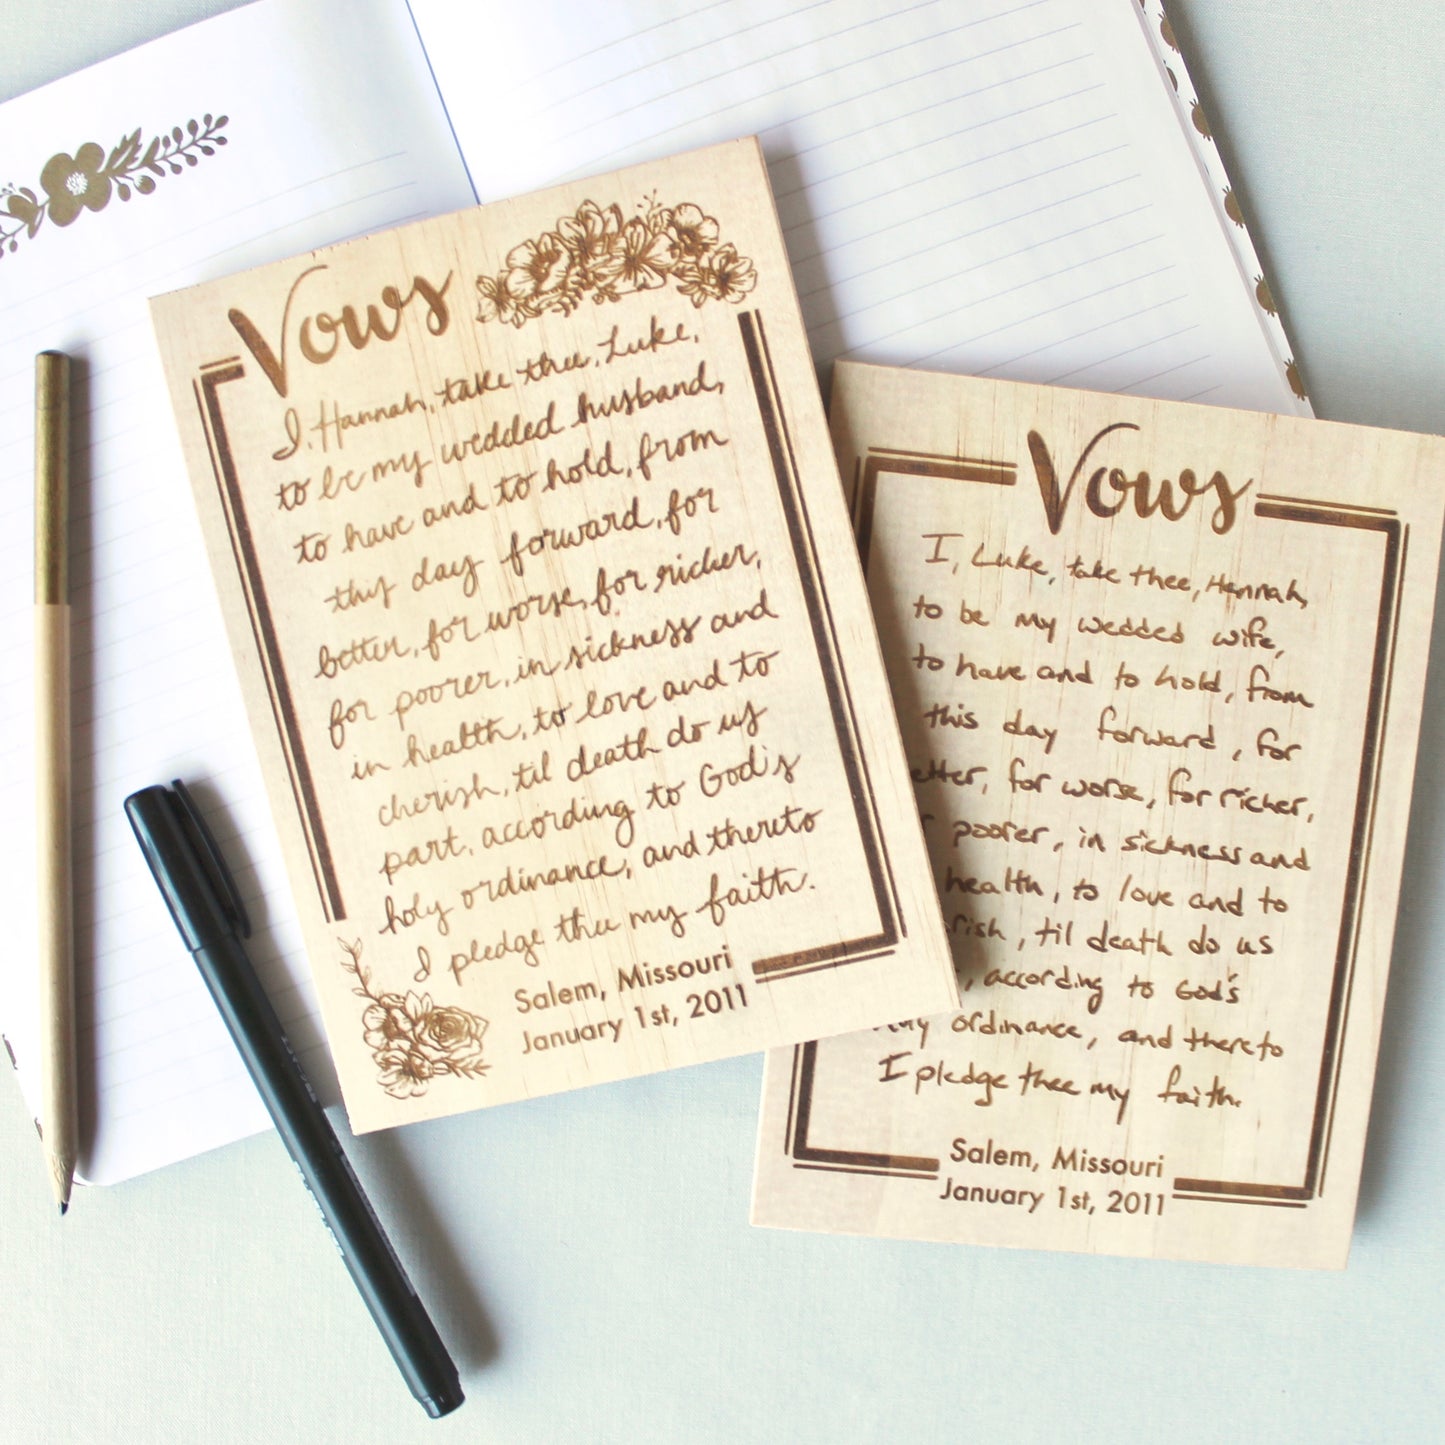 Vows
I, Hannah, take thee, Luke,
to be my wedded husband,
to have and to hold, from
this day forward, for
better, for worse, for richer,
for poorer, in sickness and
in health, to love and to
cherish, til death do us
part, according to God's
holy ordinance, and thereto
I pledge thee my faith.
Salem, Missouri
January 1st, 2011
Vows
I, Luke, take thee, Hannah,
to be my wedded wife,
to have and to hold, from
this day forward, for
etter, for worse, for richer,
r poorer, in sickness and
health, to love and to
rish, til death do us
, according to God's
ordinance, and thereto
I pledge thee my faith.
Salem, Missouri
January 1st, 2011